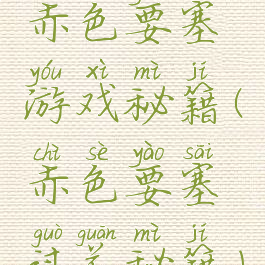 赤色要塞
yóu xì mì jí
游戏秘籍(
chì sè yào sāi
赤色要塞
guò guān mì jí
过关秘籍)